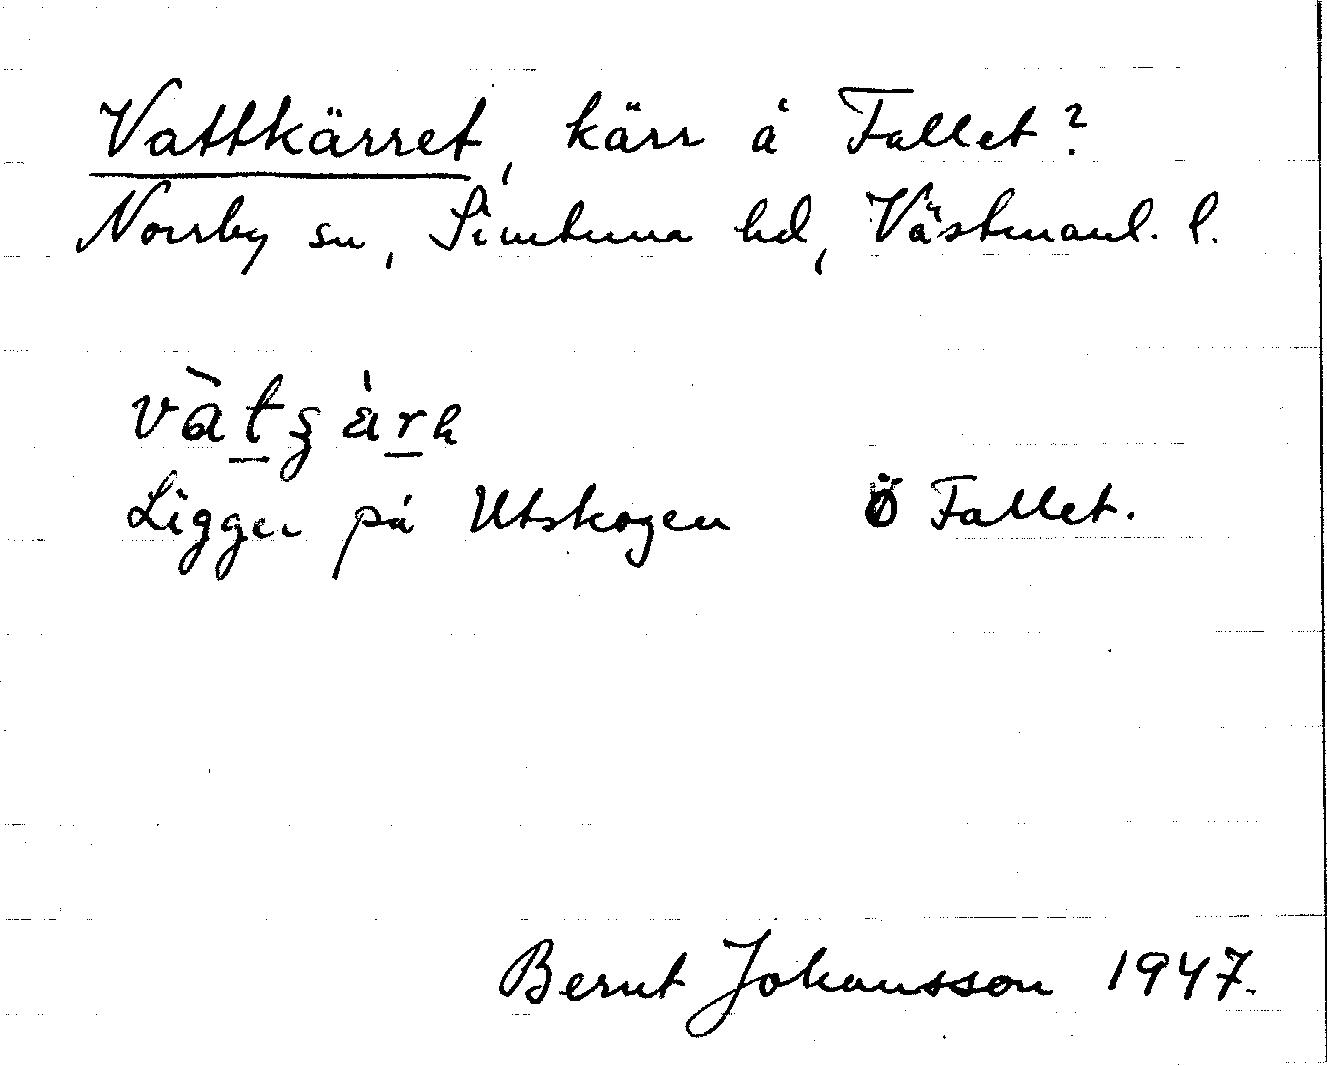 Vattkärret, kärr å Fallet?
Norrby sn, Simtuna hd, Västmanl. l.
Ligger på Utskogen Ö Fallet.
Bernt Johansson 1947.